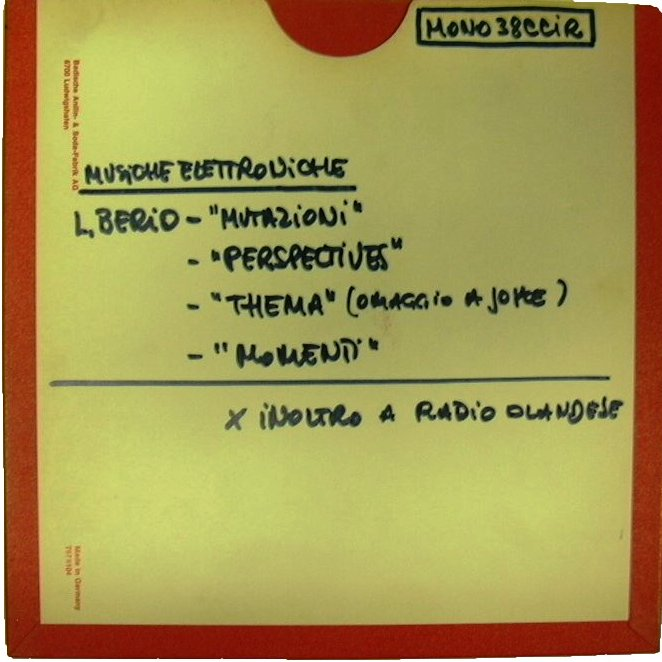 MONO 38 CCIR
Badische Anilin- & Soda-Fabrik AG
6700 Ludwigshafen
MUSICHE ELETTRONICHE
L. BERIO - "MUTAZIONI"
- "PERSPECTIVES"
- "THEMA" (OMAGGIO A JOYCE)
- "MOMENTI"
X INOLTRO A RADIO OLANDESE
Made in Germany